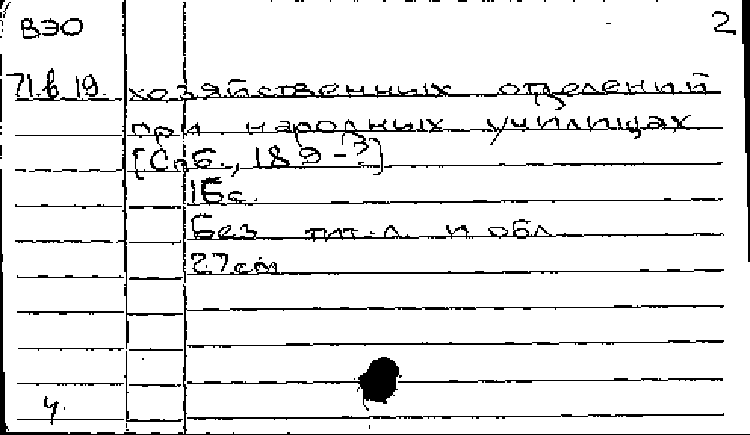 ВЭО 2
71в19 хозяйственных отделений
при народных училищах
[Спб., 189-?]
16с.
Без тит.л. и обл.
27см
ч.